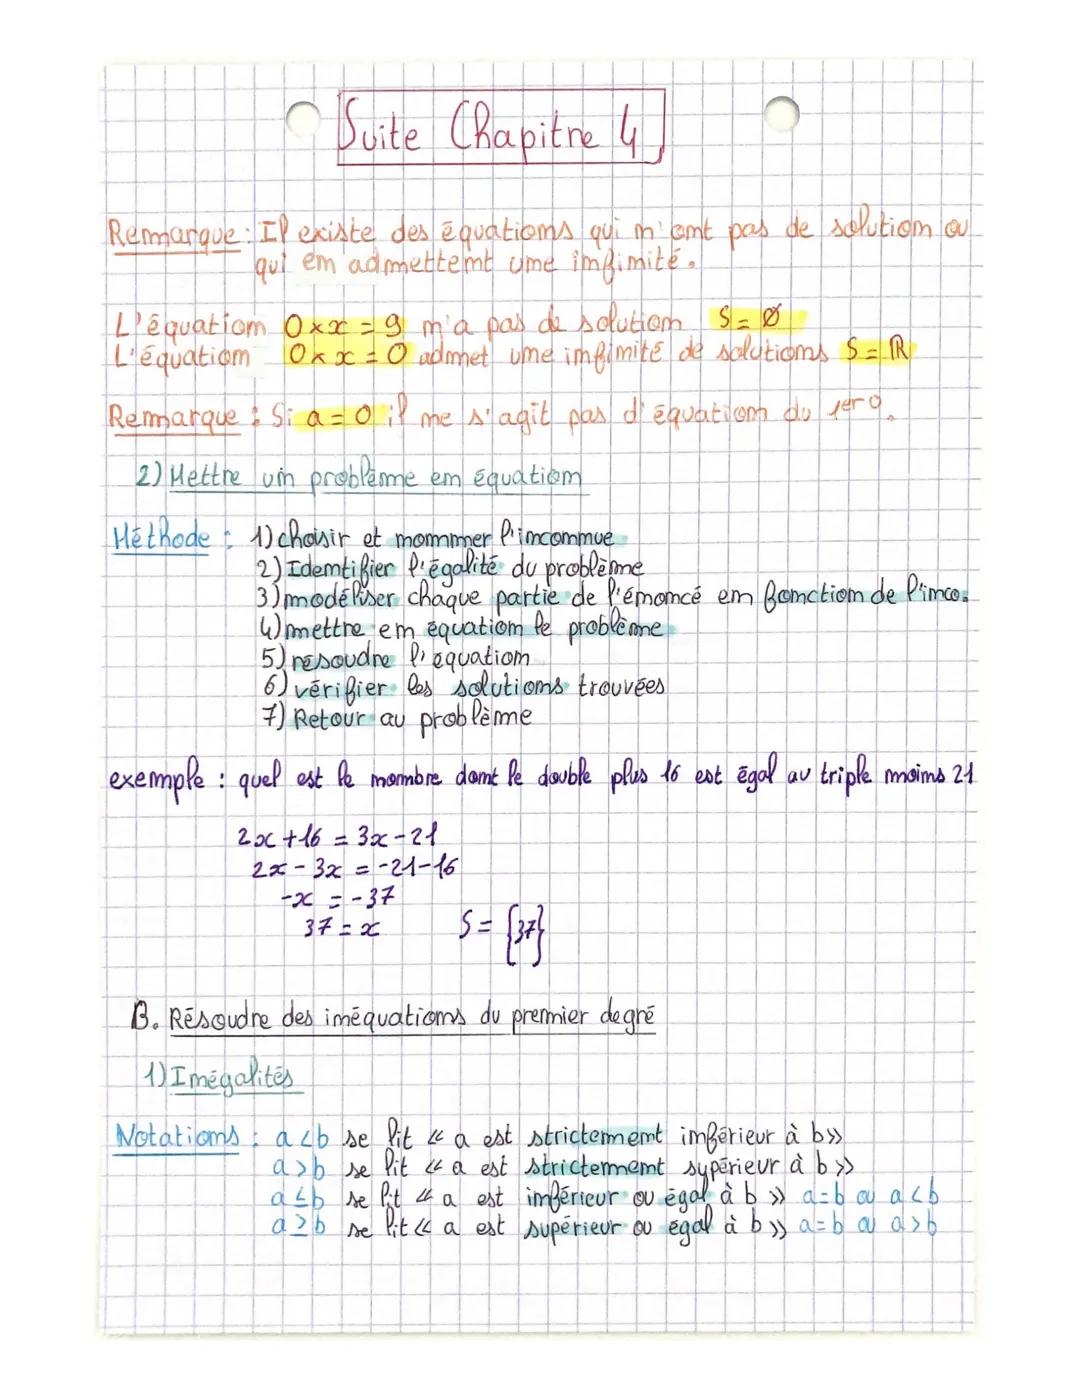 Suite Chapitre 4
Remarque : Il existe des équations qui n'ont pas de solution ou
qui en admettent une infinité.
L'équation 0 × x = 9 n'a pas de solution S = Ø
L'équation 0 × x = 0 admet une infinité de solutions S = ℝ
Remarque : Si a = 0 il ne s'agit pas d'équation du 1er 0.
2) Mettre un problème en équation
Méthode : 1) choisir et nommer l'inconnue
2) Identifier l'égalité du problème
3) modéliser chaque partie de l'énoncé en fonction de l'inco.
4) mettre en équation le problème
5) résoudre l'équation
6) vérifier les solutions trouvées
7) Retour au problème
exemple : quel est le nombre dont le double plus 16 est égal au triple moins 21
2x + 16 = 3x - 21
2x - 3x = -21 - 16
-x = -37
37 = x S = {37}
B. Résoudre des inéquations du premier degré
1) Inégalités
Notations : a < b se lit « a est strictement inférieur à b »
a > b se lit « a est strictement supérieur à b »
a ≤ b se lit « a est inférieur ou égal à b » a = b ou a < b
a ≥ b se lit « a est supérieur ou égal à b » a = b ou a > b